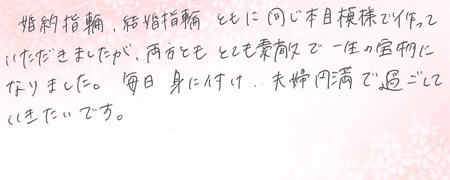 婚約指輪、結婚指輪 ともに 同じ木目模様で作って
いただきましたが、両方とも とても素敵で 一生の宝物に
なりました。 毎日 身に付け、夫婦円満で過ごして
いきたいです。